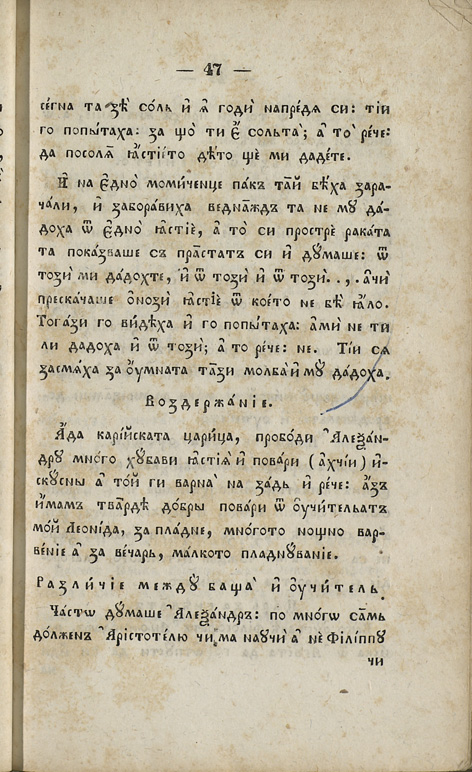 — 47 —
сегна та зѐ со́ль и я̀ годѝ напре́дя си: тіи
го попы́таха: за що̀ ти є҆̀ со́льта; а҆ то̀ ре́че:
да посоля̀ ꙗ҆́стіѧто дѣ́то щѐ ми даде́те.
И҆̀ на є҆дно̀ моми́ченце па́къ та́й бѣ́ха зара-
ча́ли, и҆ забора́виха ведна́ждъ та не мꙋ̀ да́-
доха ѿ є҆дно̀ ꙗ҆́стіе, а҆ то̀ си прострѐ рака́та
та пока́зваше съ пра́статъ си и҆ дꙋ́маше: ѿ
тозѝ ми да́дохте, и҆ ѿ тозѝ и҆ ѿ тозѝ..,. а҆чѝ
преска́чаше о҆нозѝ ꙗ҆́стіе ѿ кое́то не бѣ̀ ꙗ҆́ло.
Тога́зи го ви́дѣха и҆ го попы́таха: а҆мѝ не ти
ли да́доха и҆ ѿ тозѝ; а҆ то̀ ре́че: не. Ті́и ся
засмя́ха за ᲂу҆́мната та́зи молба̀ и҆ мꙋ̀ да́доха.
Воздержа́ніе.
А҆́да карі́йската цари́ца, прово́ди А҆леѯа́н-
дрꙋ мно́го хꙋ́бави ꙗ҆́стіѧ и҆ пова́ри (а҆хчі́и) и҆-
скꙋ́сны а҆ то́й ги варна̀ на за́дь и҆ ре́че: а҆́зъ
и҆́мамъ тва́рдѣ до́бры пова́ри ѿ ᲂу҆чи́тельатъ
мо́й Леоні́да, за пла́дне, мно́гото но́щно вар-
ве́ніе а҆ за ве́чарь, ма́лкото пладнꙋ́ваніе.
Разли́чіе междꙋ̀ баща̀ и҆ ᲂу҆чи́тель.
Ча́стѡ дꙋ́маше А҆леѯа́ндръ: по мно́гѡ са́мь
до́лженъ А҆рісто́телю чи ма наꙋчѝ а҆ нѐ Філі́ппꙋ
чи